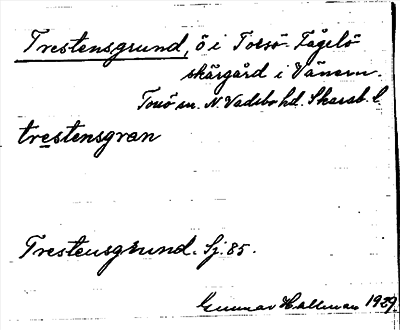 Trestensgrund, ö i Torsö-Fågelö
skärgård i Vänern.
Torsö sn. N. Vadsbo hd. Skarab. l.
trestensgran
Trestensgrund. Sj. 85.
Gunnar Hallman 1929.